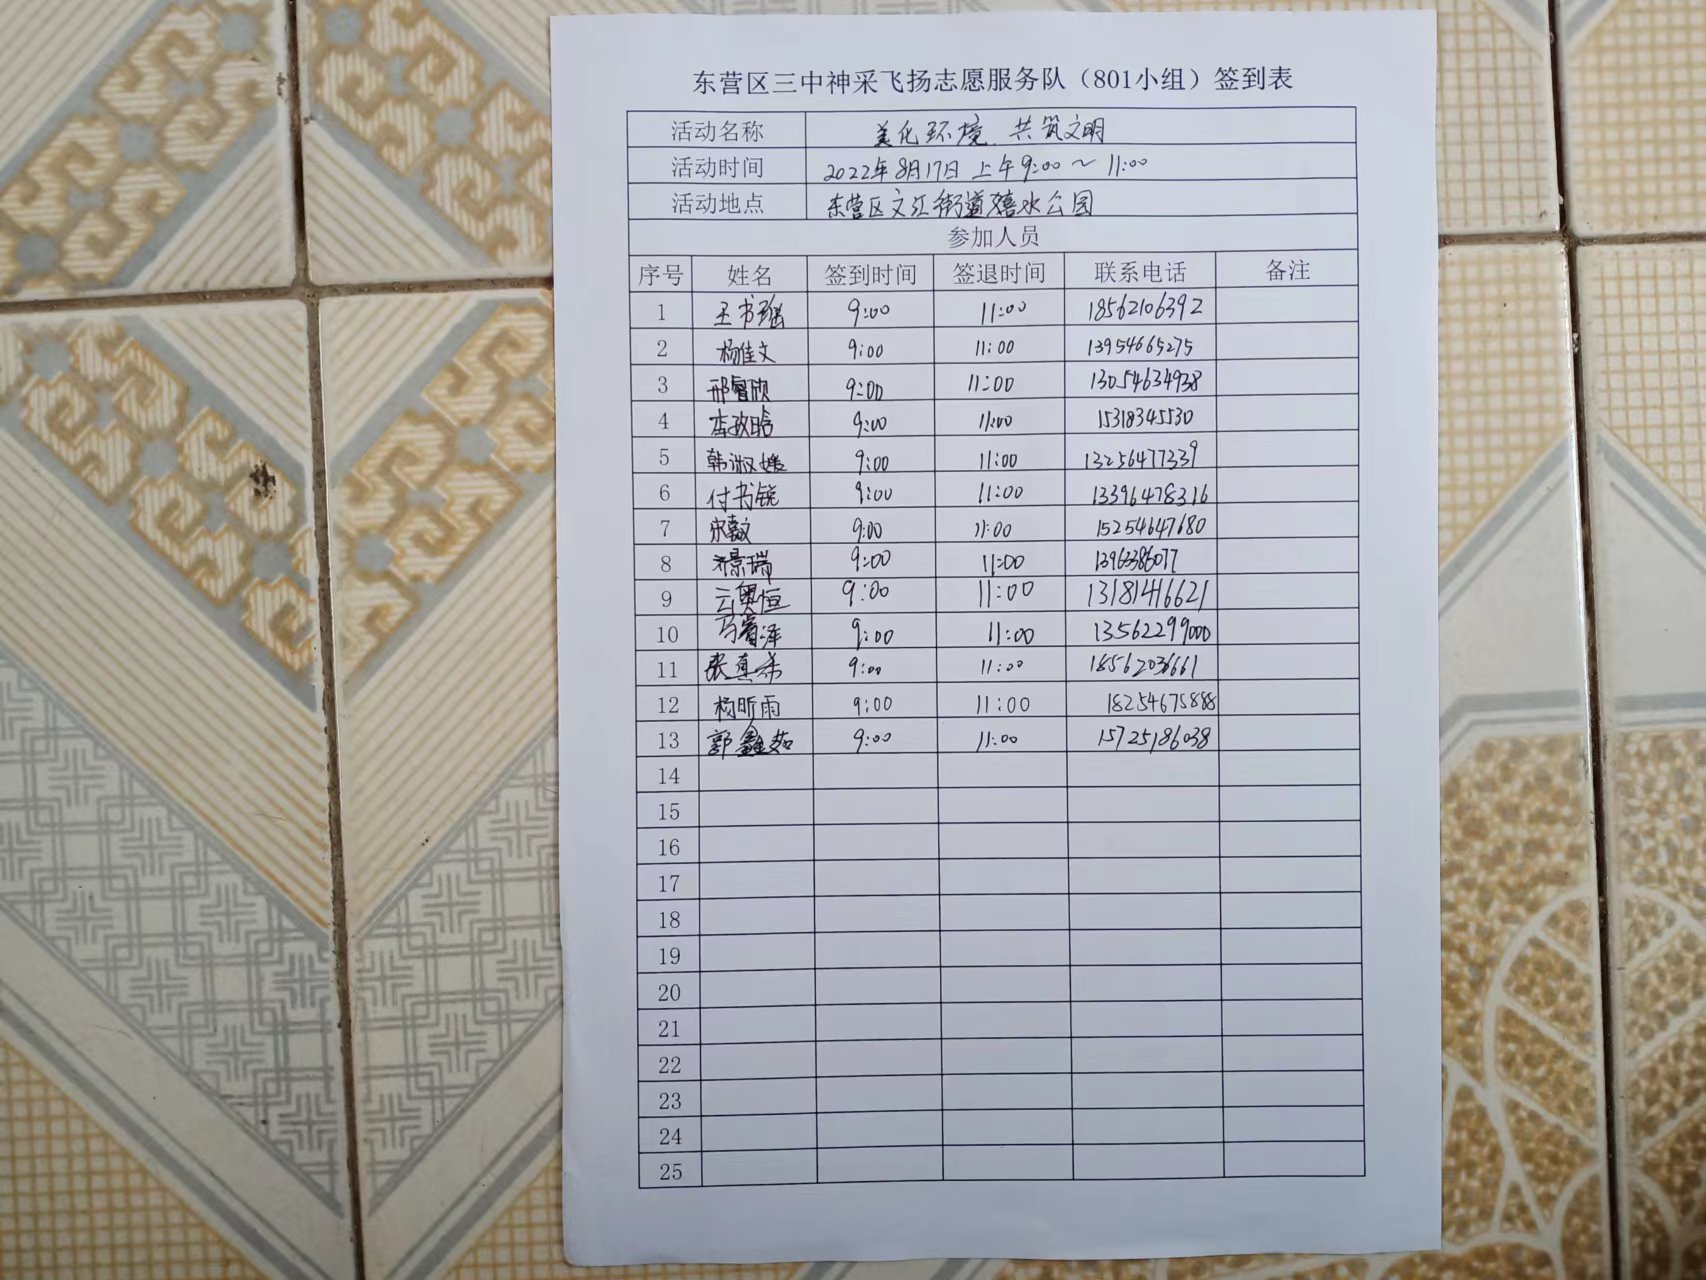 东营区三中神采飞扬志愿服务队（801小组）签到表
活动名称 美化环境、共筑文明
活动时间 2022年8月17日上午9:00～11:00
活动地点 东营区文汇街道嬉水公园
参加人员
序号 姓名 签到时间 签退时间 联系电话 备注
1 王书瑶 9:00 11:00 18562106392
2 杨佳文 9:00 11:00 13954665275
3 邢睿欣 9:00 11:00 13054634938
4 李政晗 9:00 11:00 15318345530
5 韩淑媛 9:00 11:00 13256477339
6 付书锐 9:00 11:00 13396478316
7 9:00 11:00 15254647680
8 齐景瑞 9:00 11:00 13963386077
9 云奥恒 9:00 11:00 13181416621
10 9:00 11:00 13562299000
11 张真希 9:00 11:00 18562036661
12 杨昕雨 9:00 11:00 18254675888
13 郭鑫茹 9:00 11:00 15725186038
14
15
16
17
18
19
20
21
22
23
24
25